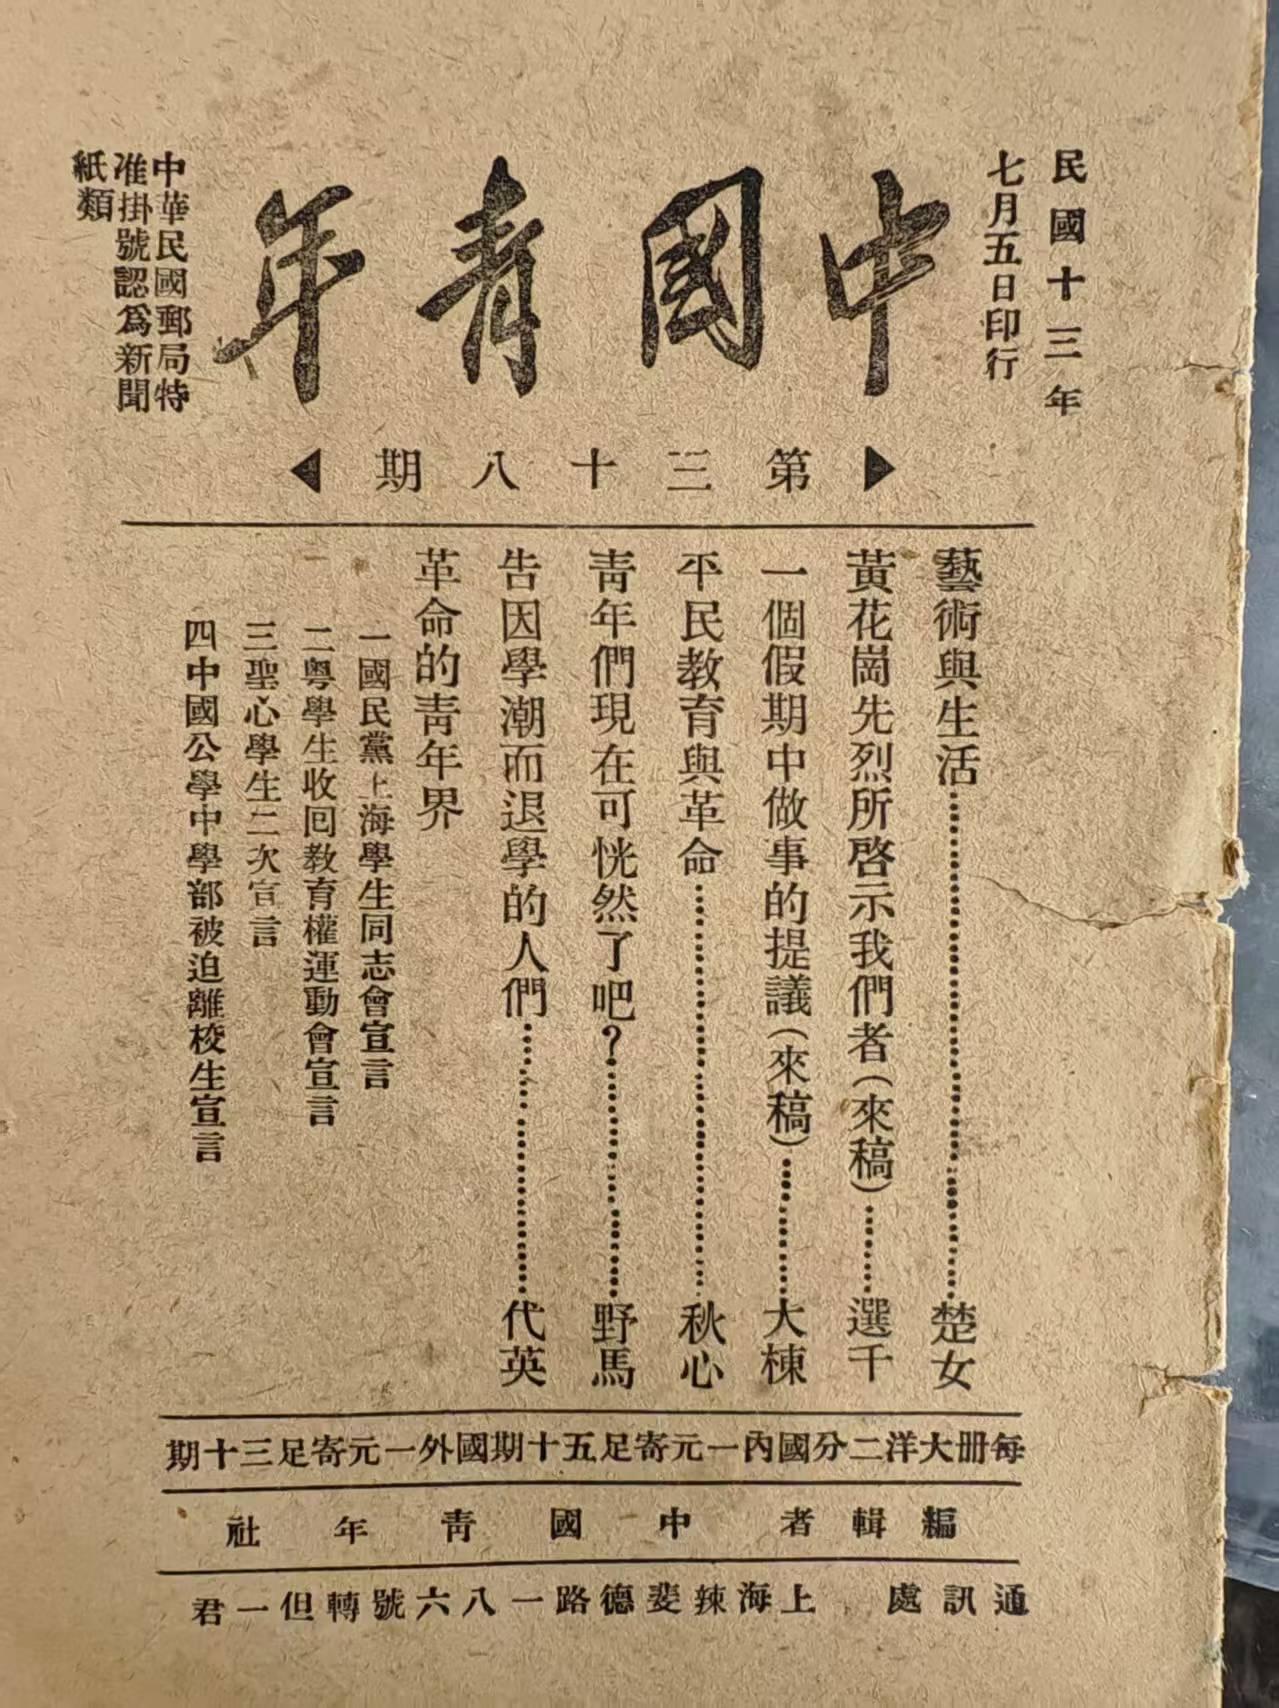 民國十三年
七月五日印行
中國青年
中華民國郵局特
准掛號認爲新聞
紙類
第三十八期
藝術與生活⋯⋯⋯⋯⋯⋯⋯⋯⋯⋯楚女
黃花崗先烈所啓示我們者(來稿)⋯⋯選千
一個假期中做事的提議(來稿)⋯⋯⋯大棟
平民教育與革命⋯⋯⋯⋯⋯⋯⋯⋯秋心
靑年們現在可恍然了吧?⋯⋯⋯⋯⋯野馬
告因學潮而退學的人們⋯⋯⋯⋯⋯⋯代英
革命的靑年界
一國民黨上海學生同志會宣言
二粵學生收回教育權運動會宣言
三聖心學生二次宣言
四中國公學中學部被迫離校生宣言
每册大洋二分國內一元寄足五十期國外一元寄足三十期
編輯者中國靑年社
通訊處 上海辣斐德路一八六號轉但一君